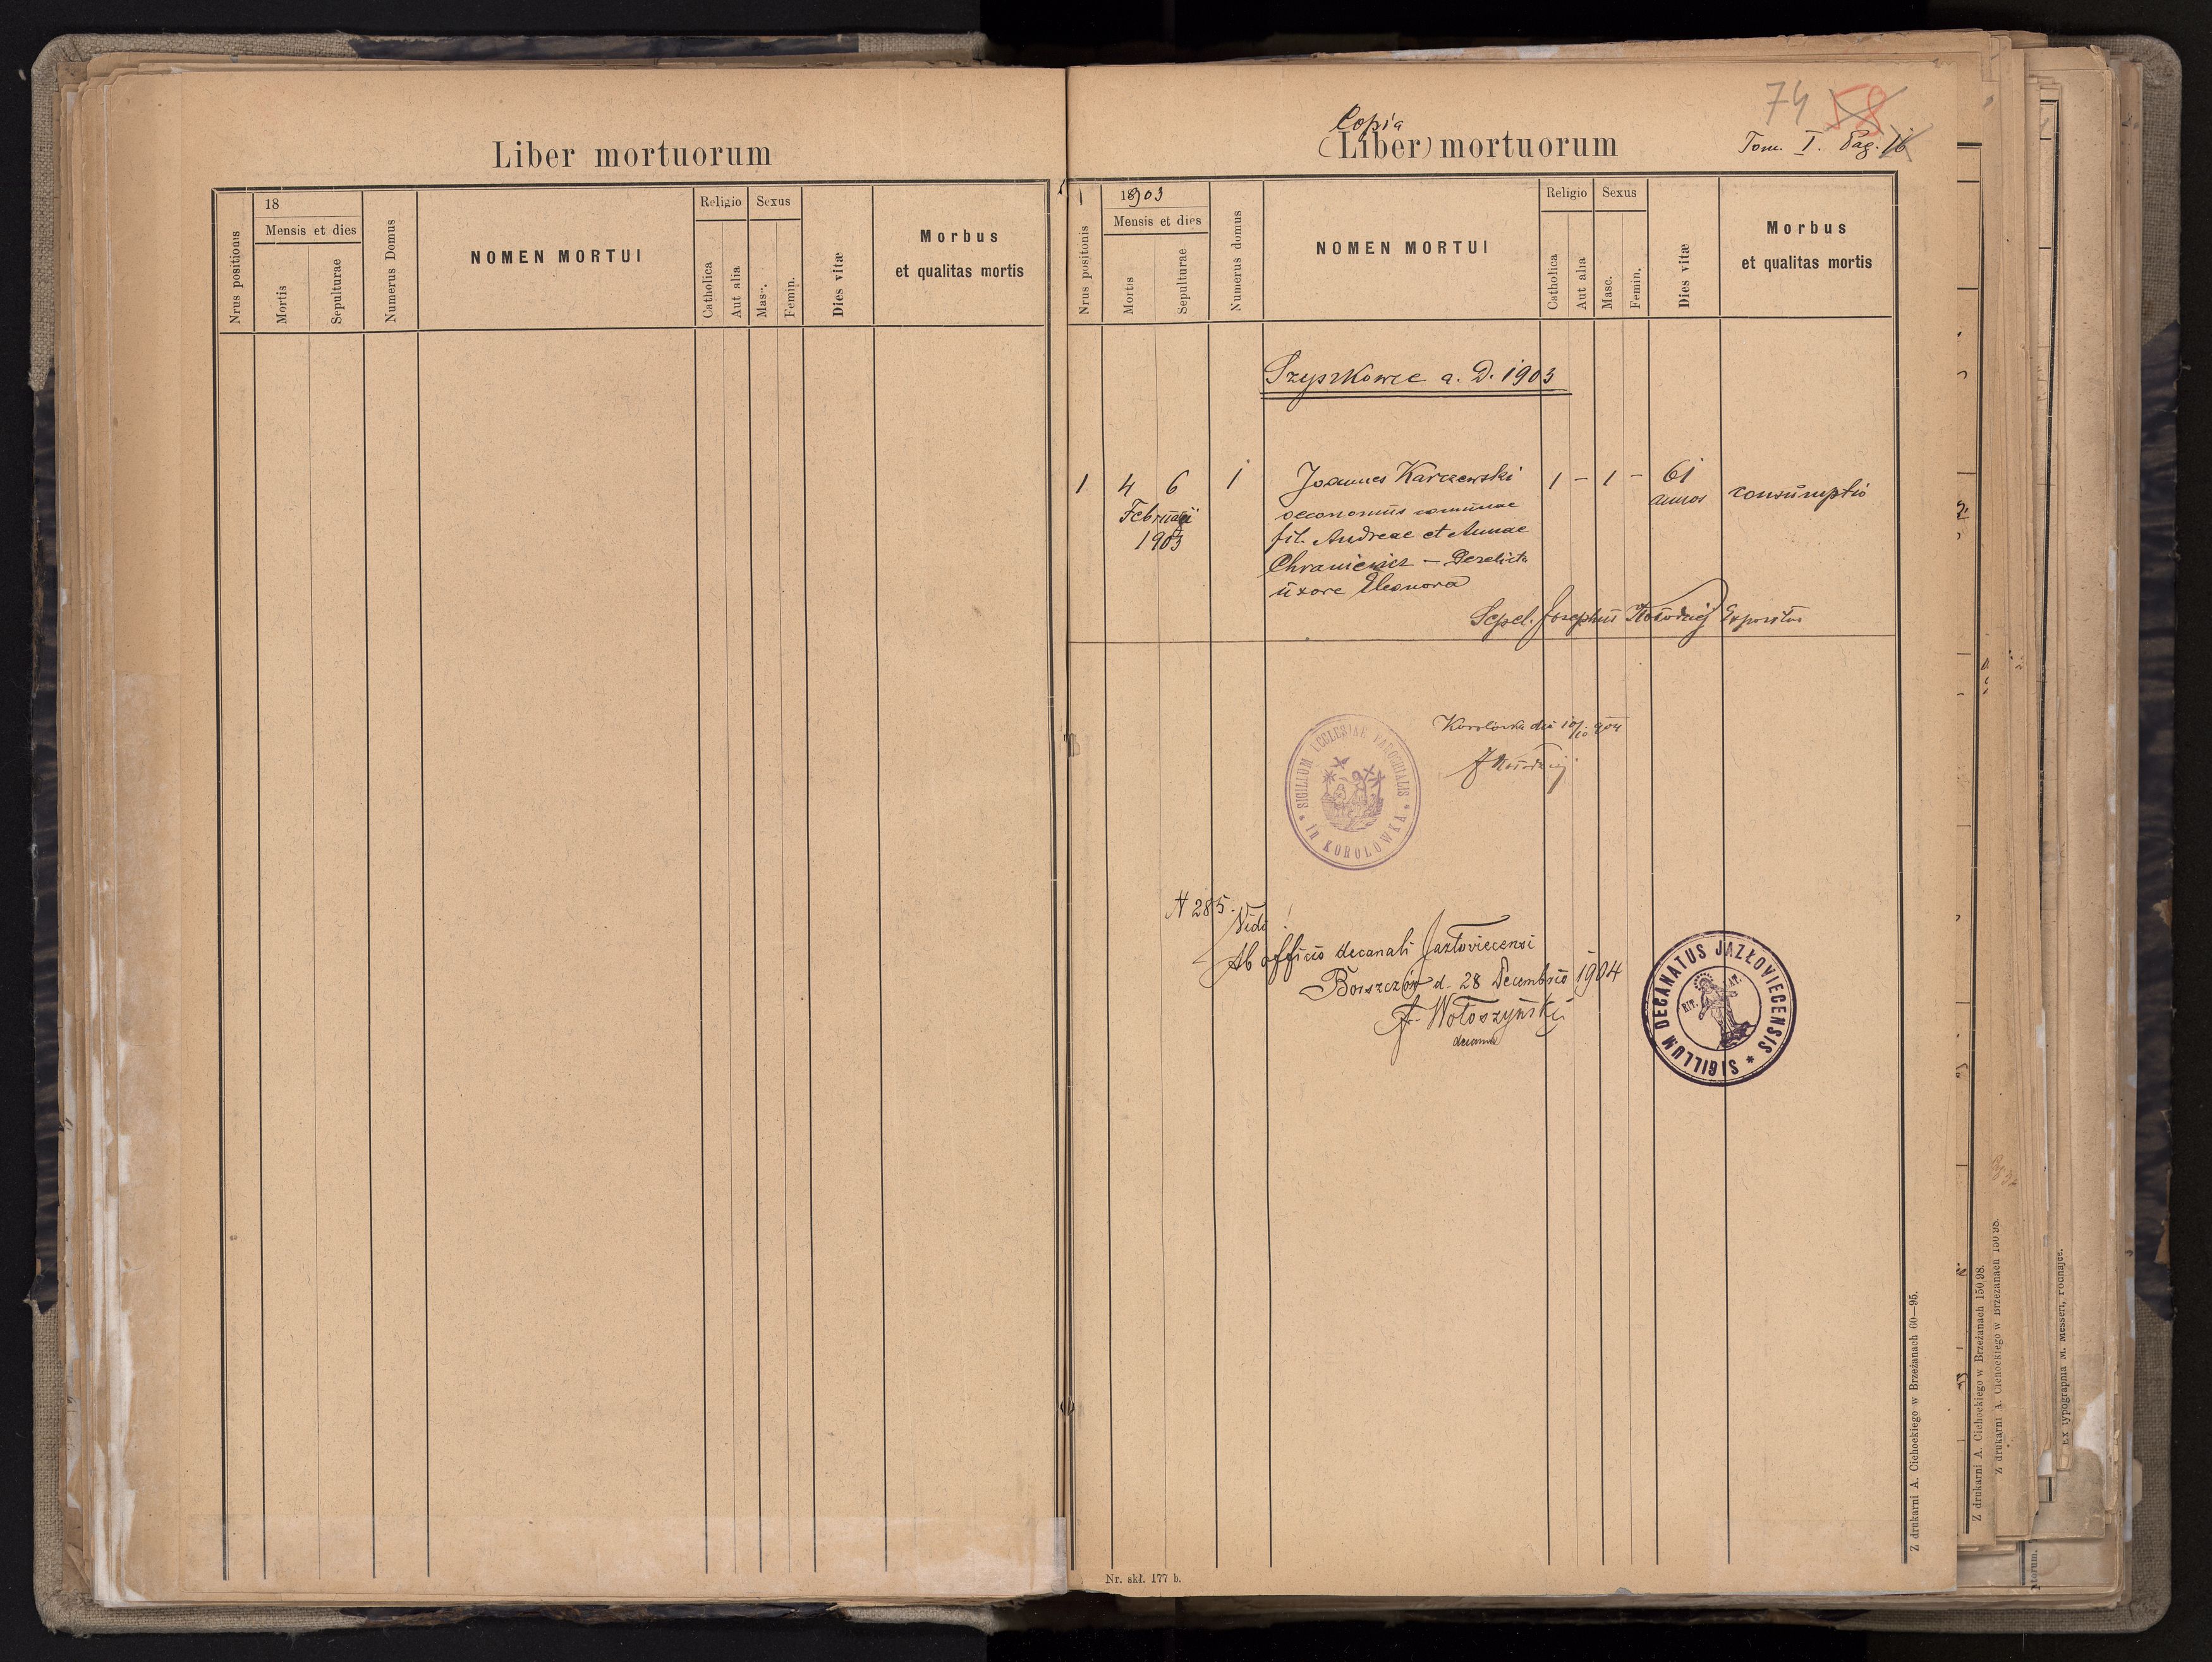 Liber mortuorum
18
Mensis et dies
Nrus positionis
Mortis
Sepulturae
Numerus Domus
NOMEN MORTUI
Religio
Sexus
Catholica
Aut alia
Masc.
Femin.
Dies vitæ
Morbus
et qualitas mortis
74 58
Copia
(Liber) mortuorum
Tom. I. Pag.
1903
Mensis et dies
Nrus positonis
Mortis
Sepulturae
Numerus domus
NOMEN MORTUI
Religio
Sexus
Catholica
Aut alia
Masc.
Femin.
Dies vitæ
Morbus
et qualitas mortis
Szyszkowce a. D. 1903
1 4 6 1 Joannes Karczewski 1 - 1 - 61
Februarii
1903
annos
consumptio
oeconomus
fil. Andreae et Annae
Chraniewicz — Derelicta
uxore Eleonora
Sepel. Josephus Kołodziej Expositus
Korolówka
SIGILLUM ECCLESIAE PAROCHIALIS * in KOROLOWKA *
N 285.
Vidi!
Ab officio decanali Jazłoviecensi
Borszczów d. 28 Decembris 1904
Wołoszyński
decanus
SIGILLUM DECANATUS JAZŁOVIECENSIS *
RIT. LAT.
Nr. skł. 177 b.
Z drukarni A. Cichockiego w Brzeżanach 60—95.
Z drukarni A. Cichockiego w Brzeżanach 150/98.
Z drukarni A. Cichockiego w Brzeżanach 150/98.